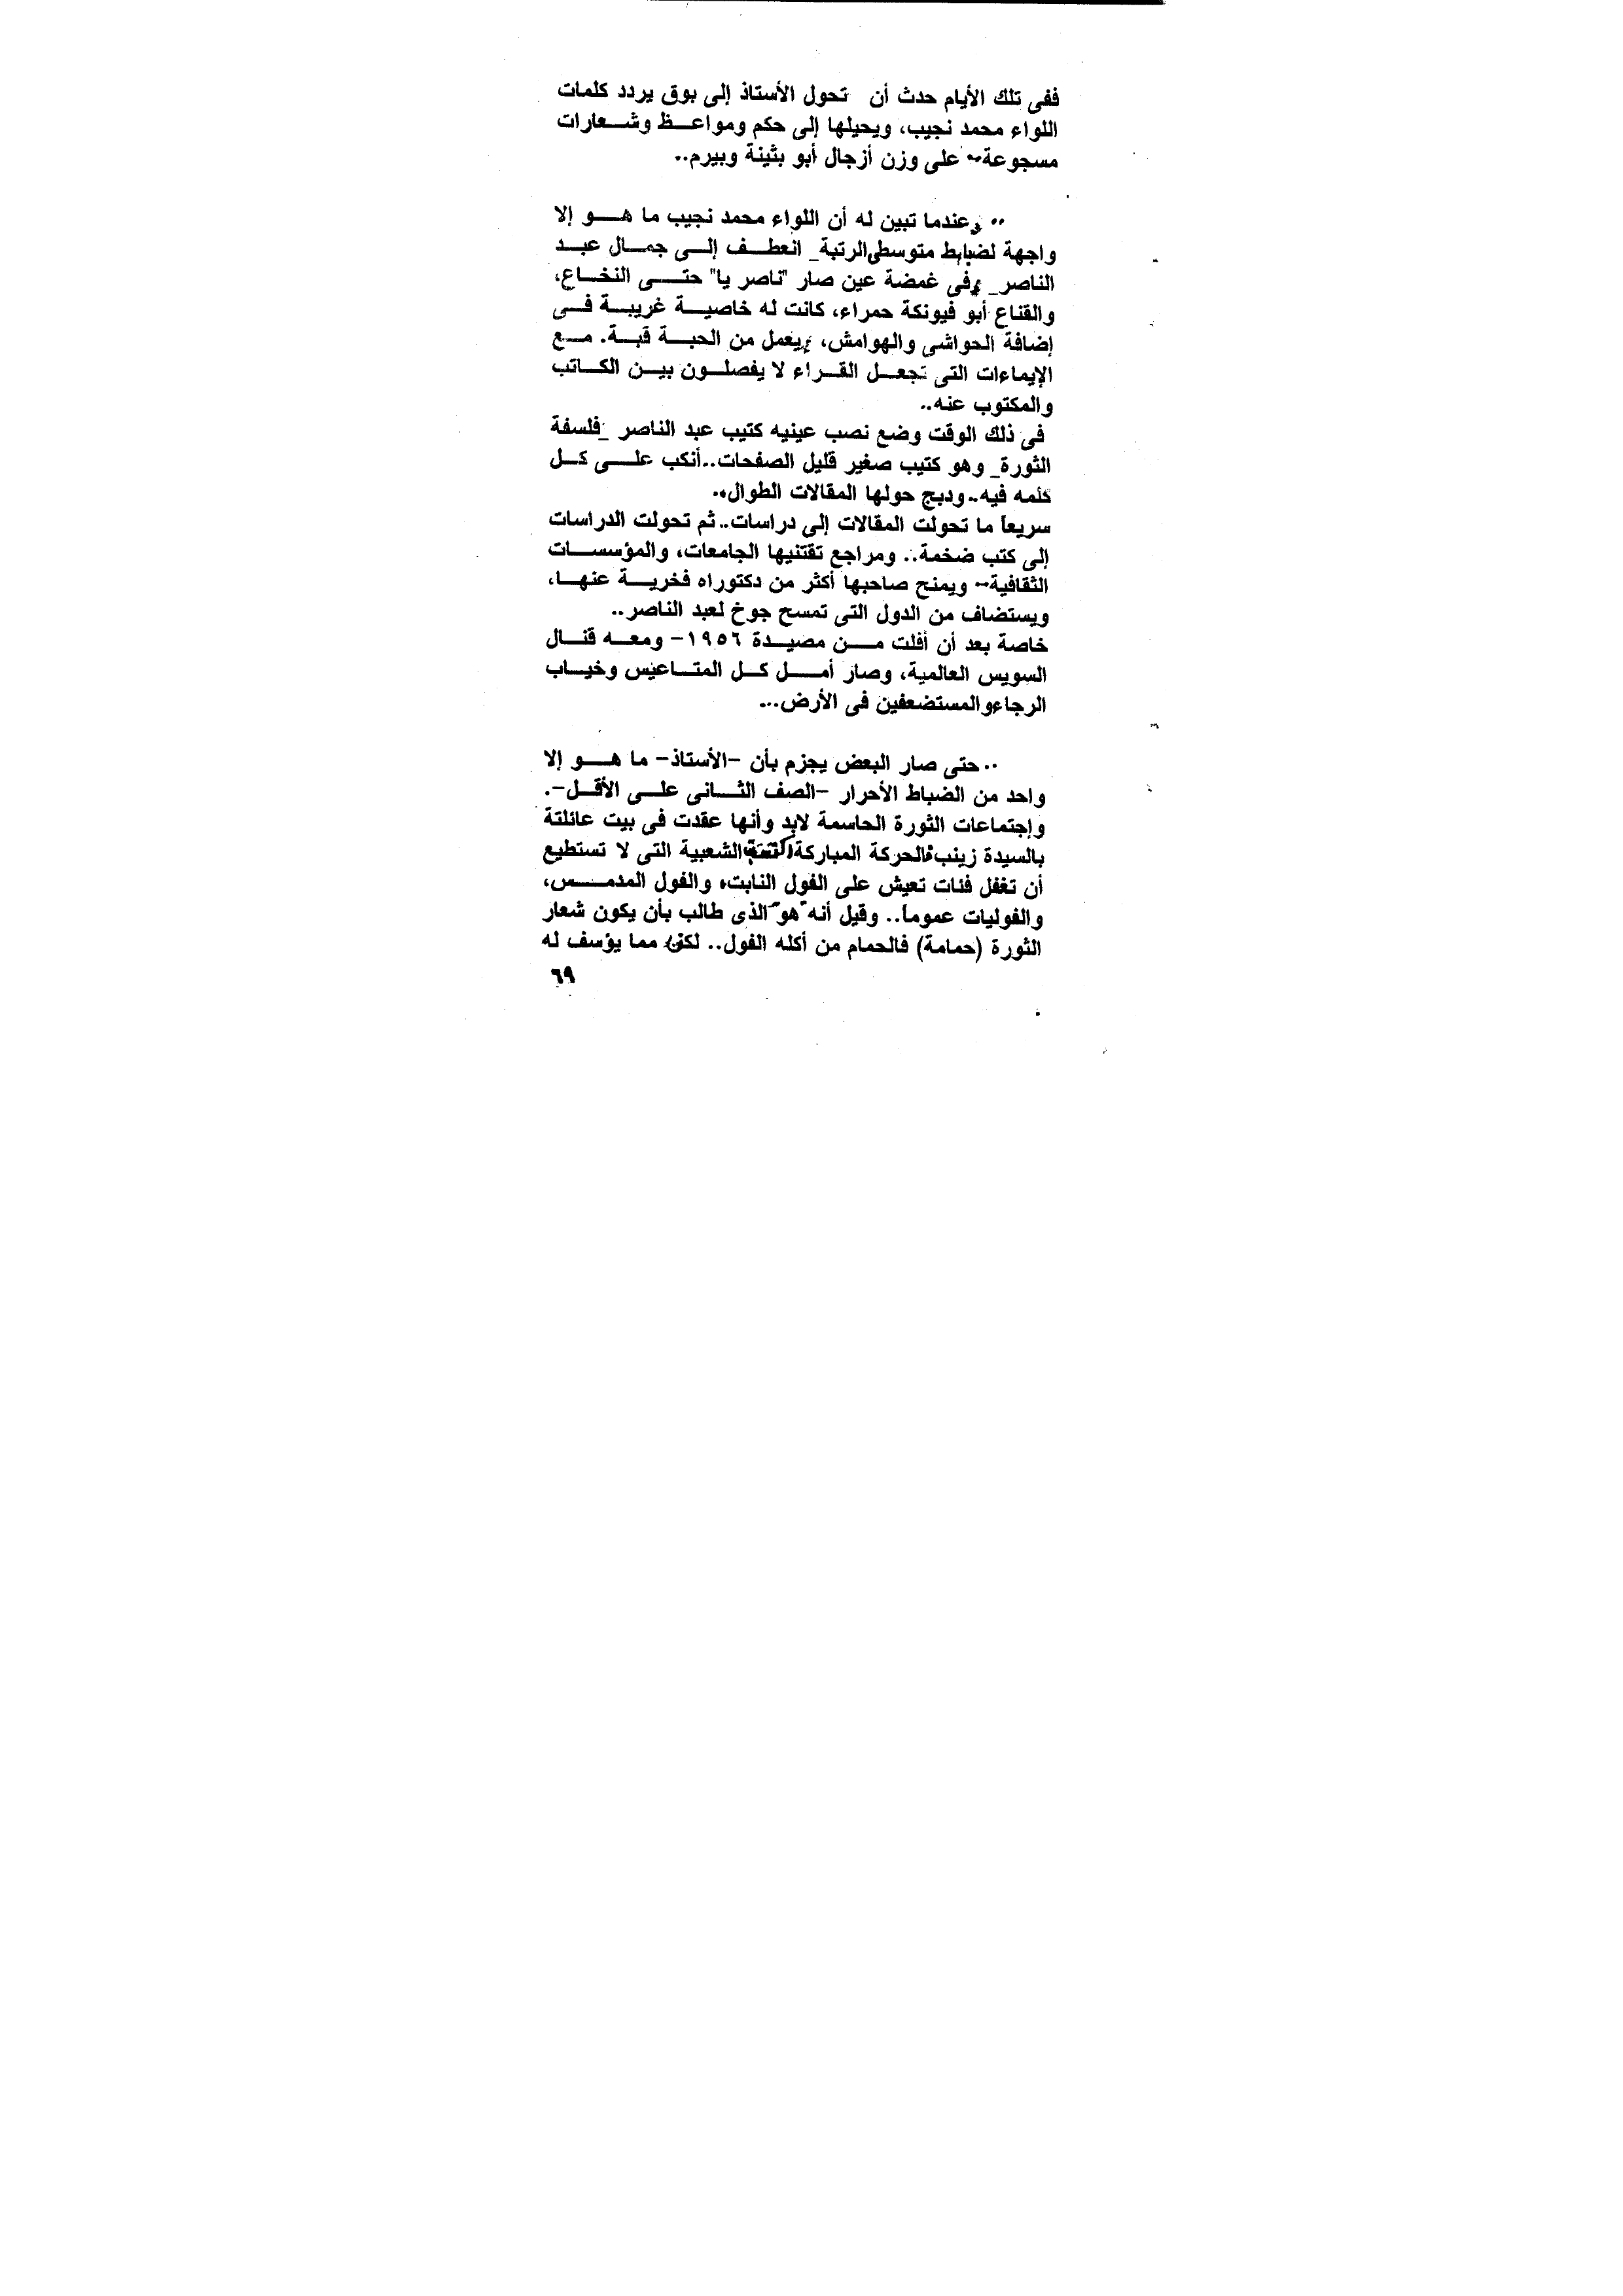 ففى تلك الأيام حدث أن تحول الأستاذ إلى بوق يردد كلمات
اللواء محمد نجيب، ويحيلها إلى حكم ومواعظ وشعارات
مسجوعة.. على وزن أزجال أبو بثينة وبيرم..
.. وعندما تبين له أن اللواء محمد نجيب ما هو إلا
واجهة لضباط متوسطى الرتبة_ انعطف إلى جمال عبد
الناصر_ وفى غمضة عين صار "ناصر يا" حتى النخاع،
والقناع أبو فيونكة حمراء، كانت له خاصية غريبة فى
إضافة الحواشى والهوامش، ويعمل من الحبة قبة. مع
الإيماءات التى تجعل القراء لا يفصلون بين الكاتب
والمكتوب عنه..
فى ذلك الوقت وضع نصب عينيه كتيب عبد الناصر _فلسفة
الثورة_ وهو كتيب صغير قليل الصفحات.. أنكب على كل
كلمه فيه.. ودبج حولها المقالات الطوال..
سريعاً ما تحولت المقالات إلى دراسات.. ثم تحولت الدراسات
إلى كتب ضخمة.. ومراجع تقتنيها الجامعات، والمؤسسات
الثقافية.. ويمنح صاحبها أكثر من دكتوراه فخرية عنها،
ويستضاف من الدول التى تمسح جوخ لعبد الناصر..
خاصة بعد أن أفلت من مصيدة ١٩٥٦- ومعه قنال
السويس العالمية، وصار أمل كل المتاعيس وخياب
الرجاء والمستضعفين فى الأرض...
.. حتى صار البعض يجزم بأن -الأستاذ- ما هو إلا
واحد من الضباط الأحرار -الصف الثانى على الأقل-.
وإجتماعات الثورة الحاسمة لابد وأنها عقدت فى بيت عائلتة
بالسيدة زينب فالحركة المباركة الشعبية التى لا تستطيع
أن تغفل فئات تعيش على الفول النابت، والفول المدمس،
والفوليات عموماً.. وقيل أنه "هو" الذى طالب بأن يكون شعار
الثورة (حمامة) فالحمام من أكله الفول.. لكن مما يؤسف له
٦٩